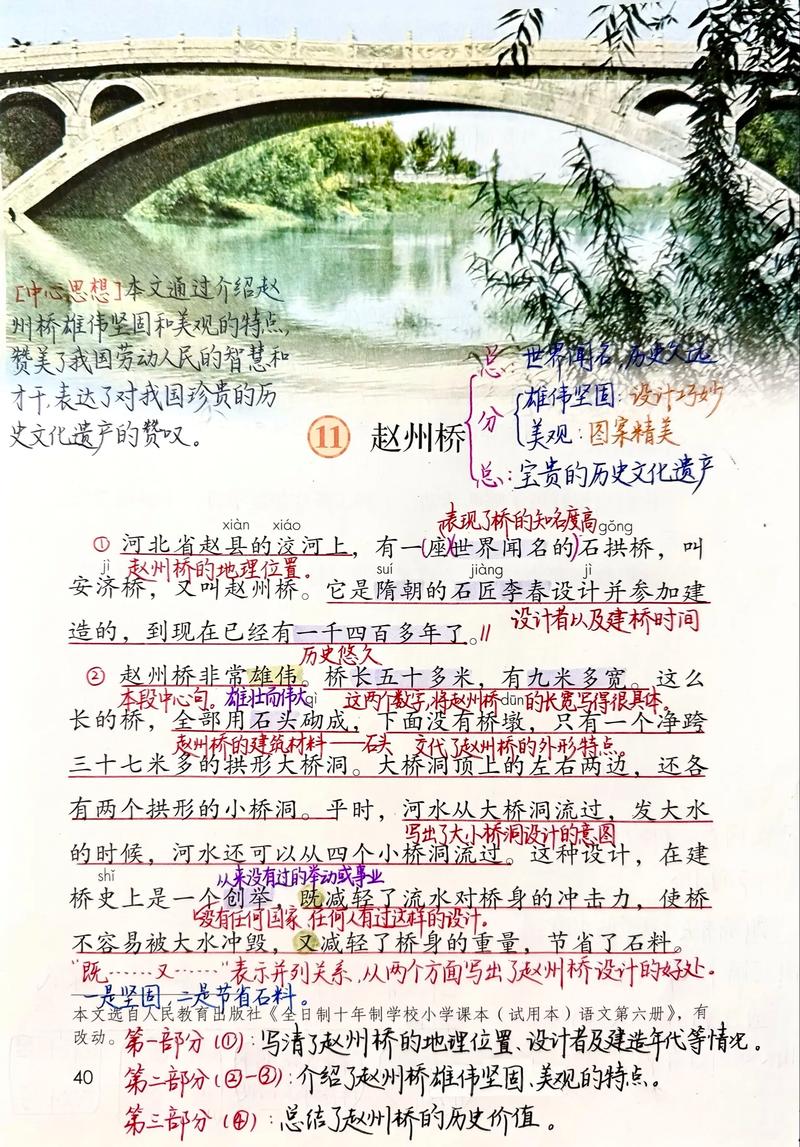 [中心思想]本文通过介绍赵
州桥雄伟坚固和美观的特点,
赞美了我国劳动人民的智慧和
才干,表达了对我国珍贵的历
史文化遗产的赞叹。
总:世界闻名,历史久远
分
雄伟坚固:设计巧妙
美观:图案精美
总:宝贵的历史文化遗产
11 赵州桥
表现了桥的知名度高
xiàn xiáo gǒng
①河北省赵县的洨河上，有一(座)(世界闻名的)石拱桥，叫
赵州桥的地理位置。
jì suí jiàng jì
安济桥，又叫赵州桥。它是隋朝的石匠李春设计并参加建
设计者以及建桥时间
造的，到现在已经有一千四百多年了。//
历史悠久
②赵州桥非常雄伟。桥长五十多米，有九米多宽。这么
本段中心句。雄壮而伟大 这两个数字,将赵州桥的长宽写得很具体。
qì dūn
长的桥，全部用石头砌成，下面没有桥墩，只有一个净跨
赵州桥的建筑材料——石头 交代了赵州桥的外形特点。
三十七米多的拱形大桥洞。大桥洞顶上的左右两边，还各
有两个拱形的小桥洞。平时，河水从大桥洞流过，发大水
写出了大小桥洞设计的意图
的时候，河水还可以从四个小桥洞流过。这种设计，在建
shǐ 从来没有过的举动或事业
桥史上是一个创举，既减轻了流水对桥身的冲击力，使桥
没有任何国家、任何人有过这样的设计。
不容易被大水冲毁，又减轻了桥身的重量，节省了石料。
“既……又……”表示并列关系,从两个方面写出了赵州桥设计的好处。
一是坚固,二是节省石料。
本文选自人民教育出版社《全日制十年制学校小学课本（试用本）语文第六册》，有
改动。
第一部分(①):写清了赵州桥的地理位置、设计者及建造年代等情况。
40 第二部分(②-③):介绍了赵州桥雄伟坚固、美观的特点。
第三部分(④):总结了赵州桥的历史价值。